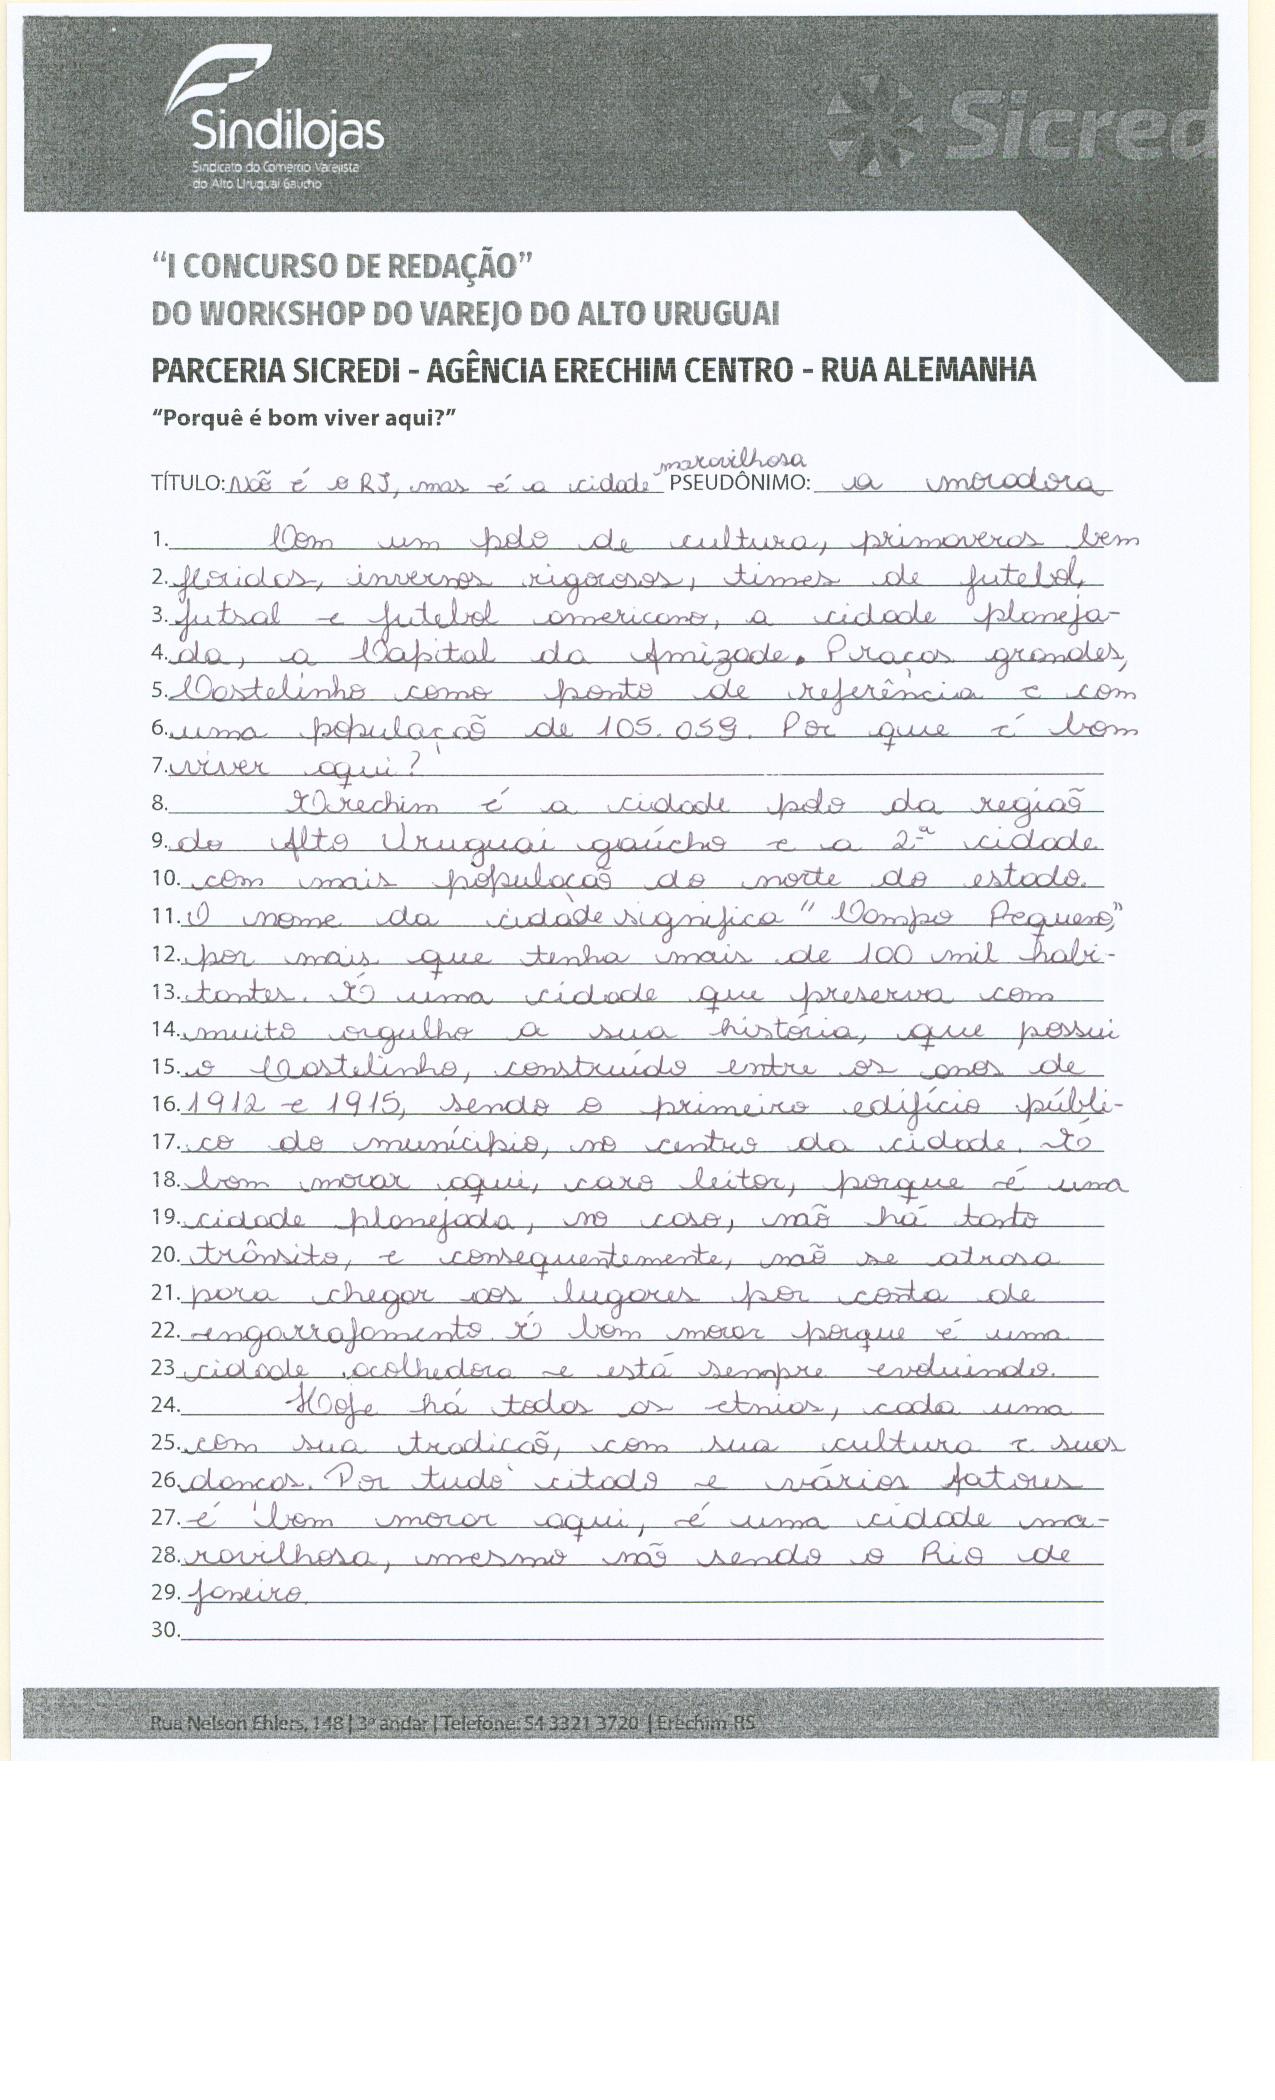 Sindilojas
Sindicato do Comércio Varejista
do Alto Uruguai Gaúcho
Sicred
“I CONCURSO DE REDAÇÃO”
DO WORKSHOP DO VAREJO DO ALTO URUGUAI
PARCERIA SICREDI - AGÊNCIA ERECHIM CENTRO - RUA ALEMANHA
“Porquê é bom viver aqui?”
TÍTULO: Não é o RJ, mas é a cidade maravilhosa PSEUDÔNIMO: a moradora
1. Com um polo de cultura, primaveras bem
2. floridas, invernos rigorosos, times de futebol,
3. futsal e futebol americano, a cidade planeja-
4. da, a Capital da Amizade. Praças grandes,
5. Castelinho como ponto de referência e com
6. uma população de 105.059. Por que é bom
7. viver aqui?
8. Erechim é a cidade polo da região
9. do Alto Uruguai gaúcho e a 2ª cidade
10. com mais população do norte do estado.
11. O nome da cidade significa "Campo Pequeno,"
12. por mais que tenha mais de 100 mil habi-
13. tantes. É uma cidade que preserva com
14. muito orgulho a sua história, que possui
15. o Castelinho, construído entre os anos de
16. 1912 e 1915, sendo o primeiro edifício públi-
17. co do município, no centro da cidade. É
18. bom morar aqui, caro leitor, porque é uma
19. cidade planejada, no caso, não há tanto
20. trânsito, e consequentemente, não se atrasa
21. para chegar aos lugares por conta de
22. engarrafamento. É bom morar porque é uma
23. cidade acolhedora e está sempre evoluindo.
24. Hoje há todas as etnias, cada uma
25. com sua tradição, com sua cultura e suas
26. danças. Por tudo citado e vários fatores
27. é bom morar aqui, é uma cidade ma-
28. ravilhosa, mesmo não sendo o Rio de
29. Janeiro.
30.
Rua Nelson Ehlers, 148 | 3º andar | Telefone: 54 3321 3720 | Erechim-RS